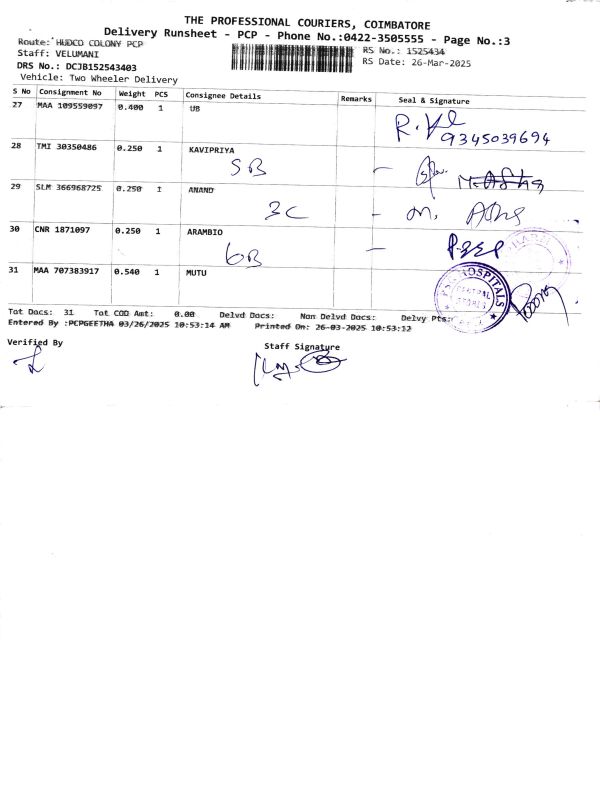 THE PROFESSIONAL COURIERS, COIMBATORE
Delivery Runsheet - PCP - Phone No.:0422-3505555 - Page No.:3
Route: HUDCO COLONY PCP
RS No.: 1525434
Staff: VELUMANI
RS Date: 26-Mar-2025
DRS No.: DCJB152543403
Vehicle: Two Wheeler Delivery
S No Consignment No Weight PCS Consignee Details Remarks Seal & Signature
27 MAA 109559097 0.400 1 UB
9345039694
28 TMI 30350486 0.250 1 KAVIPRIYA
5B
29 SLM 366968725 0.250 1 ANAND
3C
30 CNR 1871097 0.250 1 ARAMBIO
6B
31 MAA 707383917 0.540 1 MUTU
HOSPITALS
Tot Docs: 31 Tot COD Amt: 0.00 Delvd Docs: Non Delvd Docs: Delvy Pts:
Entered By :PCPGEETHA 03/26/2025 10:53:14 AM Printed On: 26-03-2025 10:53:12
Verified By
Staff Signature